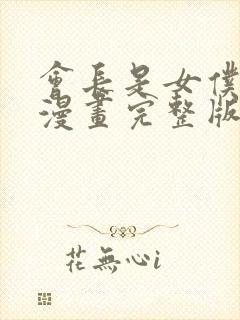 會長是女僕
漫畫完整版
花無心i